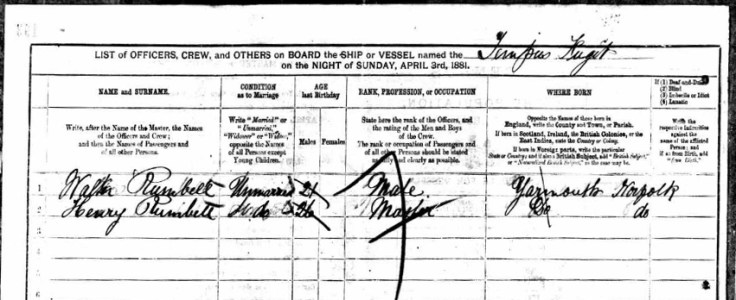 LIST OF OFFICERS, CREW, and OTHERS on BOARD the SHIP or VESSEL named the Tempus Fugit
on the NIGHT of SUNDAY, APRIL 3rd, 1881.
NAME and SURNAME.
CONDITION
as to Marriage
AGE
last Birthday
RANK, PROFESSION, or OCCUPATION
WHERE BORN
If (1) Deaf-and-Dumb
(2) Blind
(3) Imbecile or Idiot
(4) Lunatic
Write, after the Name of the Master, the Names
of the Officers and Crew;
and then the Names of Passengers and
of all other Persons.
Write "Married" or
"Unmarried,"
"Widower" or "Widow,"
opposite the Names
of all Persons except
Young Children.
Males
Females
State here the rank of the Officers, and
the rating of the Men and Boys
of the Crew.
The rank or occupation of Passengers and
of all other Persons should be stated
fully and clearly as possible.
Opposite the Names of those born in
England, write the County and Town, or Parish.
If born in Scotland, Ireland, the British Colonies, or the
East Indies, state the Country or Colony.
If born in Foreign parts, write the particular
State or Country; and if also a British Subject, add "British Subject,"
or "Naturalised British Subject," as the case may be.
Write the
respective infirmities
against the
name of the
affected Person; and
if so from Birth, add
"from Birth."
1 Walter Rumbelt Unmarried 21 Mate Yarmouth Norfolk
2 Henry Rumbelt do do Master do do
3
4
5
6